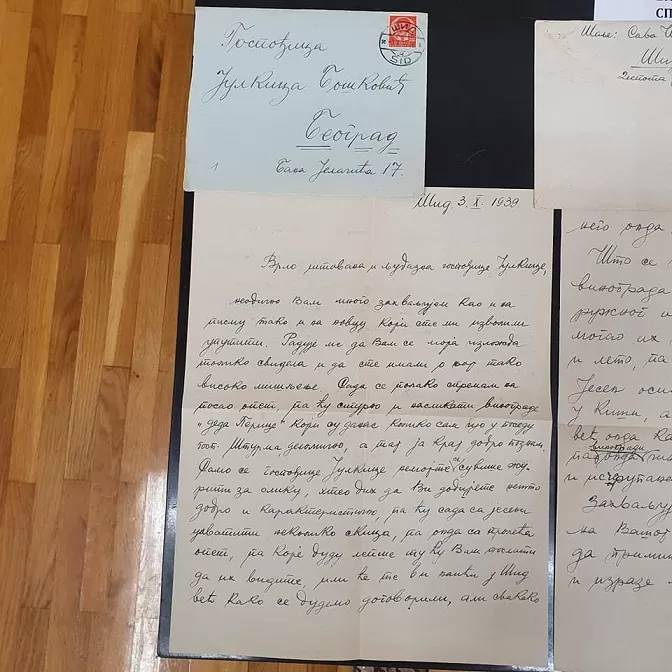 Госпођица
Јулкица Бошковић
Београд
Бана Јелачића 17.
ШИД
ŠID
СП
Шаље: Сава Ш
Шид
Шид 3. X. 1939.
Врло поштована и љубазна госпођице Јулкице,
необично Вам много захваљујем као и на
писму тако и на новцу који сте ми изволили
упутити. Радује ме да Вам се моја изложба
толико свидела и да сте имали о њој тако
високо мишљење. Сада се полако спремам на
посао опет, па ћу сигурно и насликати винограде
„деда Перице" који су данас колико сам чуо у поседу
госп. Штурма делимично, а тај ја крај добро познам.
Само се госпођице Јулкице немојте сувише жу-
рити за слику, хтео бих да Ви добијете нешто
добро и карактеристично, па ћу сада са јесени
ухватити неколико скица, па онда са пролећа
опет, па које буду лепше ту ћу Вам послати
да их видите, или ће те Ви доћи у Шид
већ како се будемо договорили, али свакако
него онда
Што се
винограда
ружног и
могао их
и лето, па
Јесен
у Кишу, а
већ онда ка
виногради
и
Захваљу
на Вашој
да прими
и изразе